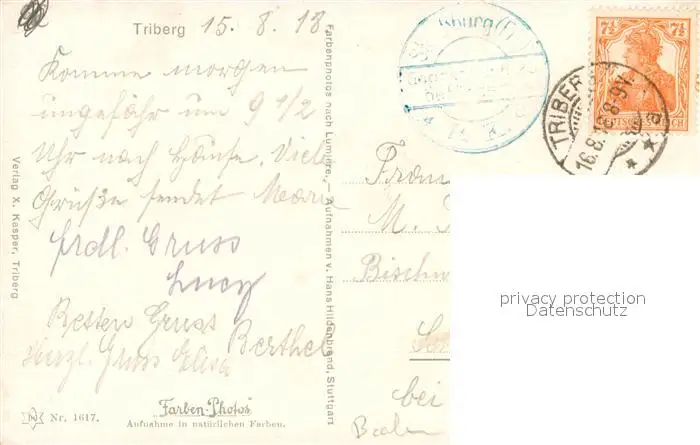 Triberg 15. 8. 18
Komme morgen
ungefähr um 9 1/2
Uhr nach Hause. Viele
Grüße sendet
frdl. Gruss
Lucy
Besten Gruss
Berthel
Herzl. Gruss Elisa
Verlag X. Kasper, Triberg
Farbenphotos nach Lumiere. — Aufnahmen v. Hans Hildenbrand, Stuttgart
Nr. 1617.
"Farben-Photos"
Aufnahme in natürlichen Farben.
7½ 7½
DEUTSCHES REICH
TRIBERG
16.8.18.8-9V.
Frau
M.
Bischw
bei
Baden
privacy protection
Datenschutz